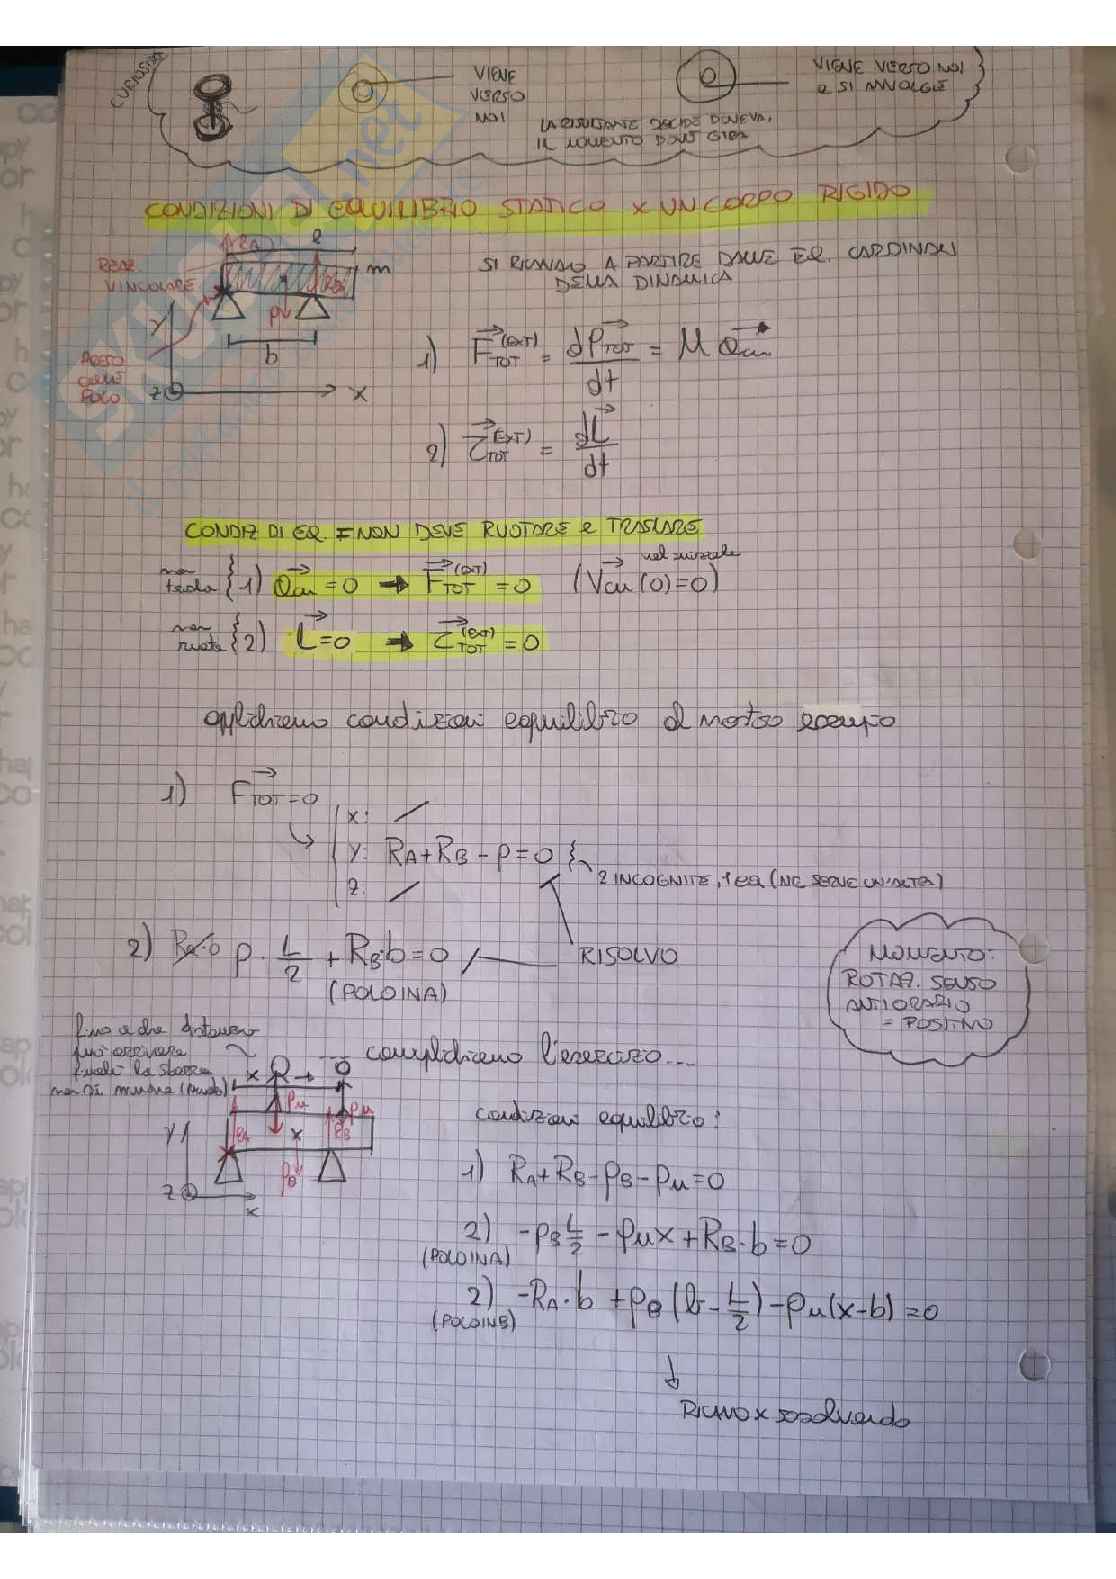 CURIOSITÀ
VIENE
VERSO
NOI
VIENE VERSO NOI
e SI AVVOLGE
LA RISULTANTE DECIDE DOVE VA,
IL MOMENTO DOVE GIRA
CONDIZIONI DI EQUILIBRIO STATICO x UN CORPO RIGIDO
REAZ.
VINCOLARE
RA
l
m
RB
P
b
y
x
z
POLO
SI RICAVANO A PARTIRE DALLE EQ. CARDINALI
DELLA DINAMICA
1) F⃗TOT(EXT) = dP⃗TOT/dt = M a⃗cm
2) τ⃗TOT(EXT) = dL⃗/dt
CONDIZ DI EQ. = NON DEVE RUOTARE e TRASLARE
non trasla { 1) a⃗cm = 0 → F⃗TOT(EXT) = 0 (V⃗cm(0) = 0)
non ruota { 2) L⃗ = 0 → τ⃗TOT(EXT) = 0
applichiamo condizioni equilibrio al nostro esempio
1) F⃗TOT = 0
x: /
y: RA + RB - P = 0 } 2 INCOGNITE, 1 eq (NE SERVE UN'ALTRA)
z: /
2) P · L/2 + RB·b = 0
RISOLVO
(POLO IN A)
MOMENTO:
ROTAZ. SENSO
ANTIORARIO
= POSITIVO
fino a che distanza
può arrivare
... complichiamo l'esercizio...
x
Pu
Pu
RA
RB
x
PB
y
z
x
condizioni equilibrio:
1) RA + RB - PB - Pu = 0
2) -PB L/2 - Pu x + RB · b = 0
(POLO IN A)
2) -RA · b + PB (b - L/2) - Pu (x - b) = 0
(POLO IN B)
↓
RICAVO x risolvendo